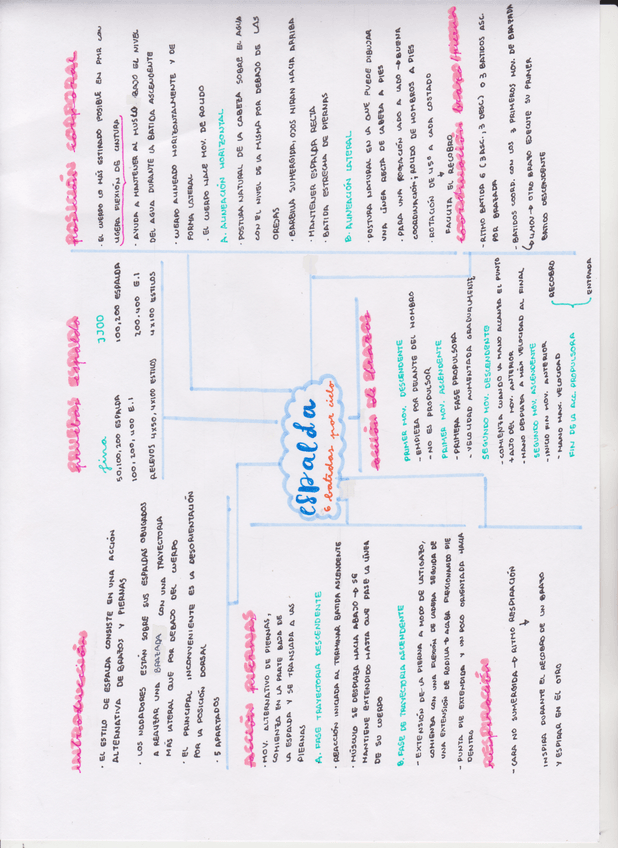 introducción
· EL ESTILO DE ESPALDA CONSISTE EN UNA ACCIÓN
ALTERNATIVA DE BRAZOS Y PIERNAS
· LOS NADADORES ESTÁN SOBRE SUS ESPALDAS OBLIGADOS
A REALIZAR UNA BRAZADA CON UNA TRAYECTORIA
MÁS LATERAL QUE POR DEBAJO DEL CUERPO
· EL PRINCIPAL INCONVENIENTE ES LA DESORIENTACIÓN
POR LA POSICIÓN DORSAL
· 5 APARTADOS
pruebas espalda
fina
50,100,200 ESPALDA
100,200,400 E.I
RELEVOS 4x50, 4x100 ESTILOS
JJOO
100,200 ESPALDA
200,400 E.I
4x100 ESTILOS
posición corporal
· EL CUERPO LO MÁS ESTIRADO POSIBLE EN PMR CON
LIGERA FLEXIÓN DE CINTURA
· AYUDA A MANTENER AL MUSLO BAJO EL NIVEL
DEL AGUA DURANTE LA BATIDA ASCENDENTE
· CUERPO ALINEADO HORIZONTALMENTE Y DE
FORMA LATERAL
· EL CUERPO HACE MOV. DE ROLIDO
A. ALINEACIÓN HORIZONTAL
· POSTURA NATURAL DE LA CABEZA SOBRE EL AGUA
CON EL NIVEL DE LA MISMA POR DEBAJO DE LAS
OREJAS
· BARBILLA SUMERGIDA, OJOS MIRAN HACIA ARRIBA
· MANTENER ESPALDA RECTA
· BATIDA ESTRECHA DE PIERNAS
B. ALINEACIÓN LATERAL
· POSTURA NATURAL EN LA QUE PUEDE DIBUJAR
UNA LÍNEA RECTA DE CABEZA A PIES
- PARA UNA ROTACIÓN LADO A LADO → BUENA
COORDINACIÓN; ROLIDO DE HOMBROS A PIES
- ROTACIÓN DE 45º A CADA COSTADO
↓
FACILITA EL RECOBRO
espalda
6 batidas por ciclo
acción piernas
· MOV. ALTERNATIVO DE PIERNAS,
COMIENZA EN LA PARTE BAJA DE
LA ESPALDA Y SE TRANSLADA A LAS
PIERNAS
A. FASE TRAYECTORIA DESCENDENTE
· REACCIÓN INICIADA AL TERMINAR BATIDA ASCENDENTE
· MÚSCULO SE DESPLAZA HACIA ABAJO → SE
MANTIENE EXTENDIDO HASTA QUE PASE LA LÍNEA
DE SU CUERPO
B. FASE DE TRAYECTORIA ASCENDENTE
- EXTENSIÓN DE LA PIERNA A MODO DE LATIGAZO,
COMIENZA CON UNA FLEXIÓN DE CADERA SEGUIDA DE
UNA EXTENSIÓN DE RODILLA + ARRIBA PRESIONANDO PIE
- PUNTA PIE EXTENDIDA Y UN POCO ORIENTADA HACIA
DENTRO
Respiración
- CARA NO SUMERGIDA → RITMO RESPIRACIÓN
↓
INSPIRA DURANTE EL RECOBRO DE UN BRAZO
Y ESPIRAR EN EL OTRO
acción de brazos
PRIMER MOV. DESCENDENTE
- EMPIEZA POR DELANTE DEL HOMBRO
- NO ES PROPULSOR
PRIMER MOV. ASCENDENTE
- PRIMERA FASE PROPULSORA
- VELOCIDAD AUMENTADA GRADUALMENTE
SEGUNDO MOV. DESCENDENTE
- COMIENZA CUANDO LA MANO ALCANZA EL PUNTO
+ ALTO DEL MOV. ANTERIOR
- MANO DESPLAZA A MÁX VELOCIDAD AL FINAL
SEGUNDO MOV. ASCENDENTE
- INICIO FIN MOV. ANTERIOR
- MANO MÁX. VELOCIDAD
FIN DE LA ACC. PROPULSORA
RECOBRO
ENTRADA
coordinación brazo/pierna
- RITMO BATIDA 6 (3 ASC., 3 DESC) O 3 BATIDOS ASC.
POR BRAZADA
- BATIDOS COORD. CON LOS 3 PRIMEROS MOV. DE BRAZADA
↳ 4 MOV → OTRO BRAZO EJECUTE SU PRIMER
BATIDO DESCENDENTE